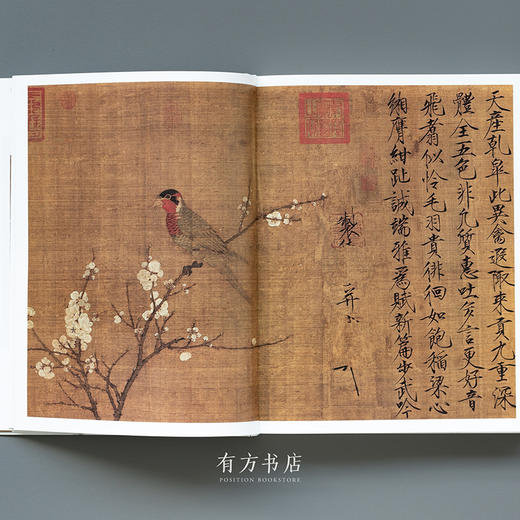 天產乾皋此異禽遐陬來貢九重深
體全五色非凡質惠吐多言更好音
飛翥似怜毛羽貴徘徊如飽稻粱心
緗膺紺趾誠端雅爲賦新篇步武吟
製
并
有方书店
POSITION BOOKSTORE